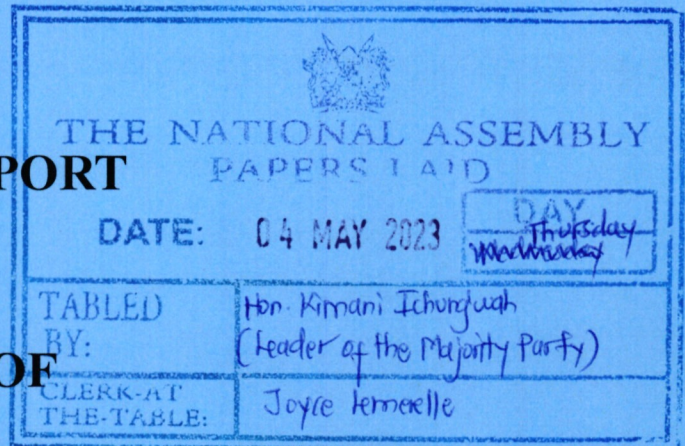 THE NATIONAL ASSEMBLY
PORT
PAPERS LAID
DATE: 04 MAY 2023
DAY
Thursday
TABLED BY:
Hon. Kimani Ichungwah
(Leader of the Majority Party)
OF
CLERK-AT THE-TABLE:
Joyce Lemerelle